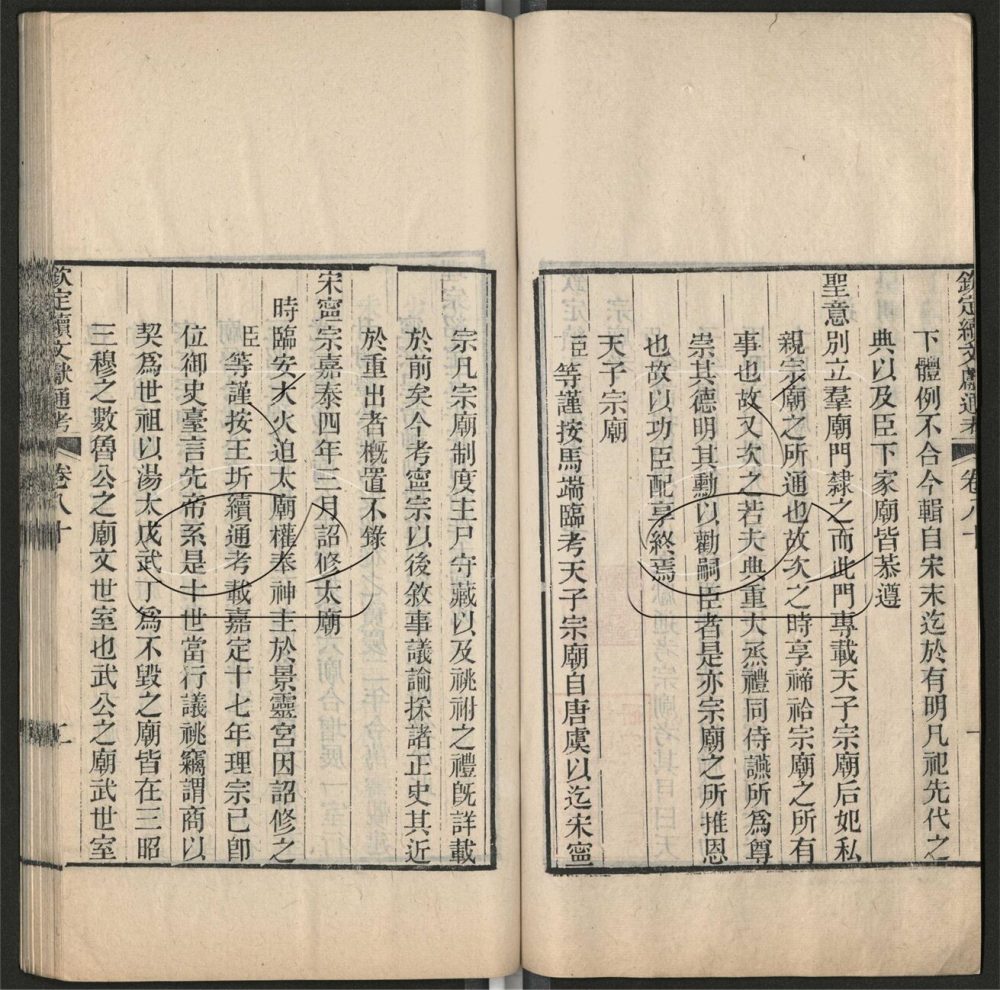 欽定續文獻通考 卷八十
下體例不合今輯自宋末迄於有明凡祀先代之
典以及臣下家廟皆恭遵
聖意別立羣廟門隸之而此門專載天子宗廟后妃私
親宗廟之所通也故次之時享禘祫宗廟之所有
事也故又次之若夫典重大烝禮同侍讌所爲尊
崇其德明其勳以勸嗣臣者是亦宗廟之所推恩
也故以功臣配享終焉
天子宗廟
臣等謹按馬端臨考天子宗廟自唐虞以迄宋寧
宗凡宗廟制度主尸守藏以及祧祔之禮旣詳載
於前矣今考寧宗以後敘事議論採諸正史其近
於重出者槪置不錄
宋寧宗嘉泰四年三月詔修太廟
時臨安大火迫太廟權奉神主於景靈宮因詔修之
臣等謹按王圻續通考載嘉定十七年理宗已卽
位御史臺言先帝系是十世當行議祧竊謂商以
契爲世祖以湯太戊武丁爲不毀之廟皆在三昭
三穆之數魯公之廟文世室也武公之廟武世室
欽定續文獻通考 卷八十